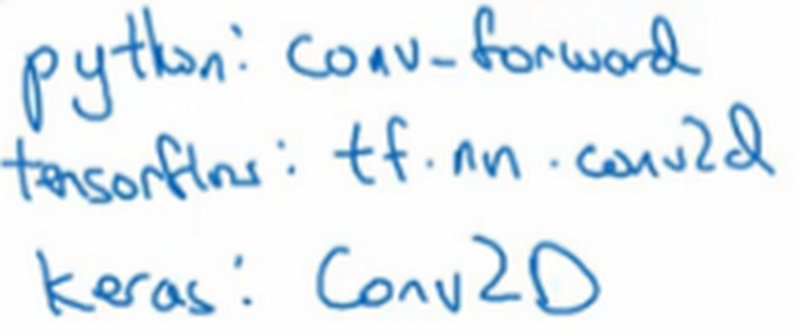 python: conv-forward
tensorflow: tf.nn.conv2d
keras: Conv2D